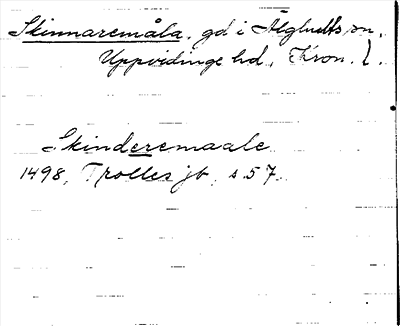 Skinnaremåla, gd i Älghults sn,
Uppvidinge hd, Kron. l.
Skinderemaale
1498, Trolles jb, s. 57.